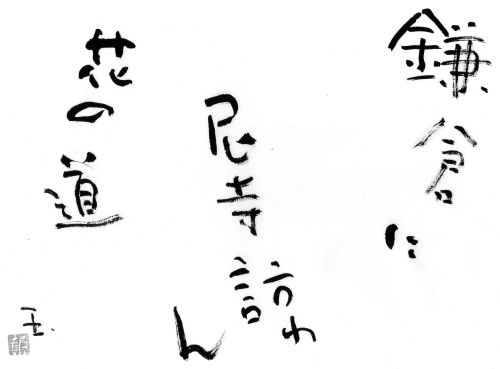 鎌倉に
尼寺訪わん
花の道
玉